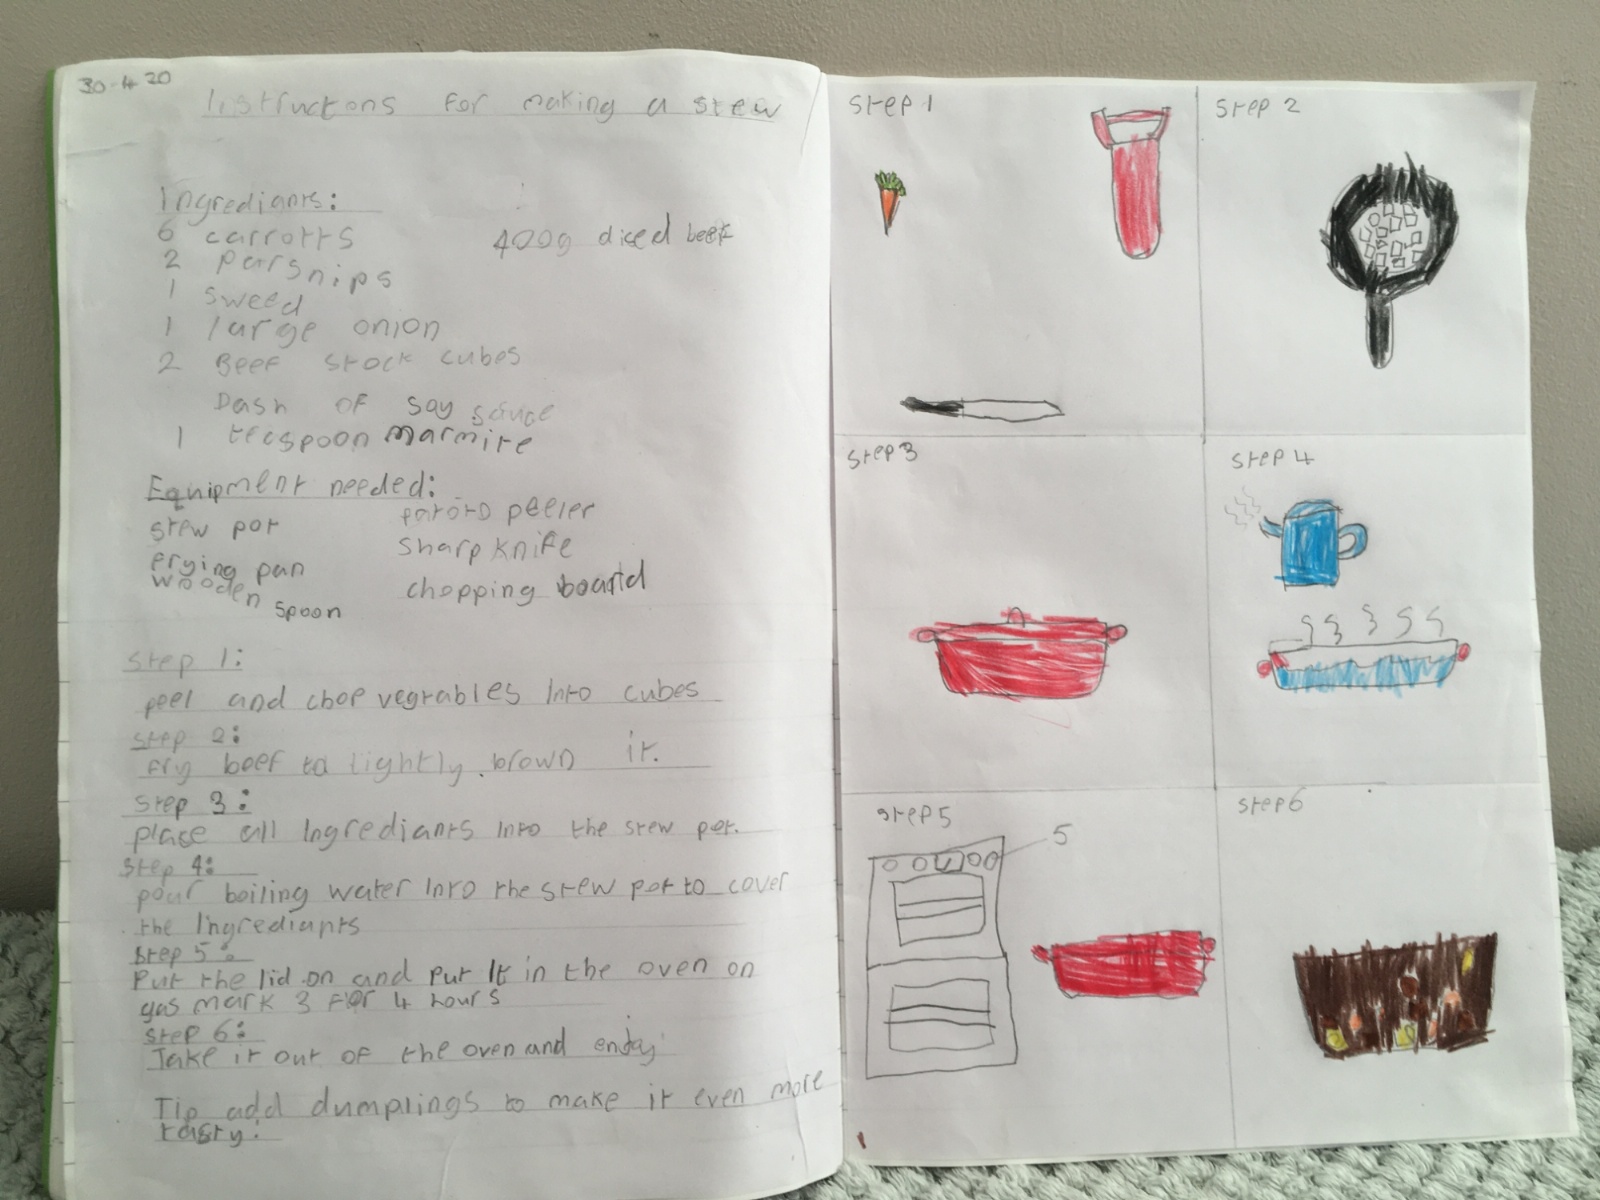 30-4 20
Instructons for making a stew
Ingrediants:
6 carrotts
400g diced beef
2 parsnips
1 sweed
1 large onion
2 Beef stock cubes
Dash of soy sauce
1 teaspoon marmite
Equipment needed:
stew pot
potato peeler
frying pan
sharp knife
wooden spoon
chopping board
Step 1:
peel and chop vegtables into cubes
Step 2:
fry beef to lightly brown it.
Step 3:
place all Ingrediants into the stew pot.
Step 4:
pour boiling water into the stew pot to cover
the Ingrediants
Step 5:
Put the lid on and put it in the oven on
gas mark 3 for 4 hours
Step 6:
Take it out of the oven and enjoy
Tip add dumplings to make it even more
tasty!
Step 1
Step 2
Step 3
Step 4
Step 5
5
Step 6